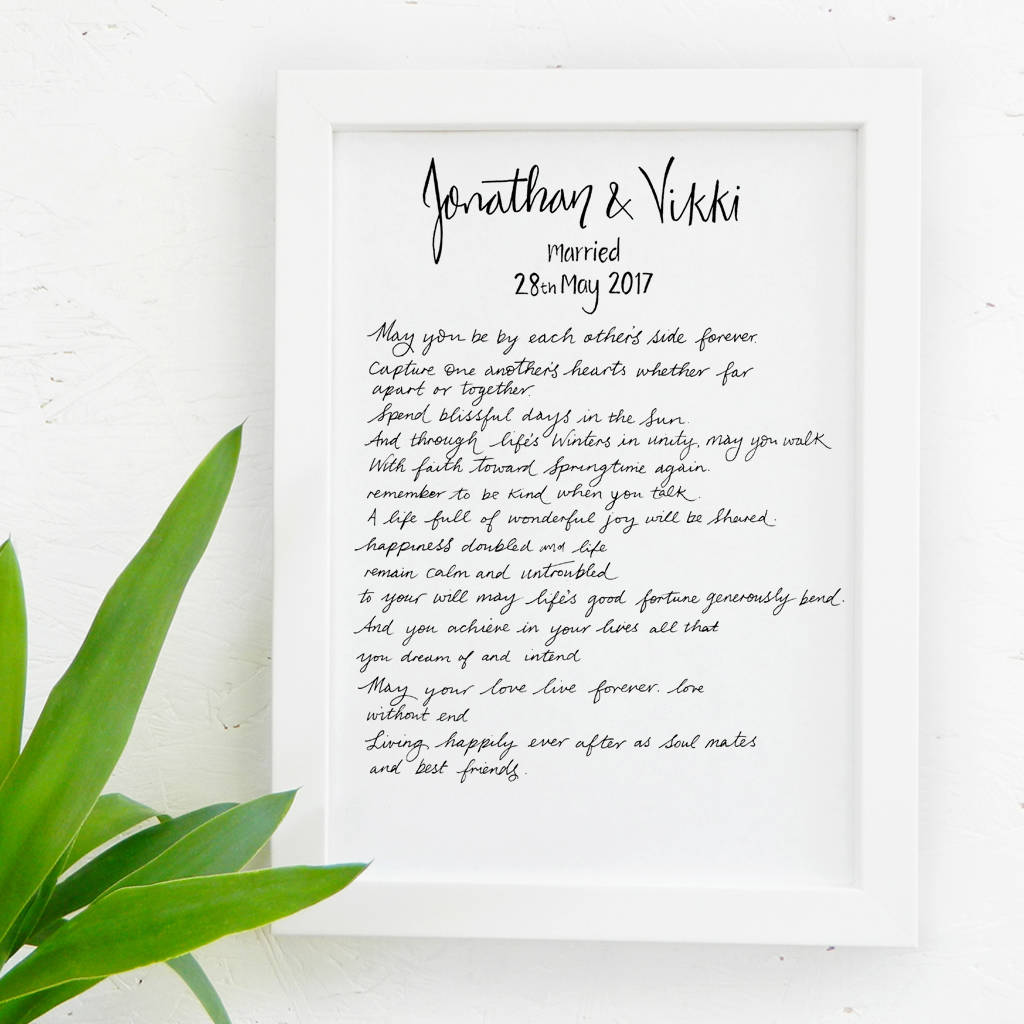 Jonathan & Vikki
Married
28th May 2017
May you be by each other's side forever.
Capture one another's hearts whether far
apart or together.
Spend blissful days in the sun.
And through life's Winters in unity, may you walk
With faith toward Springtime again.
remember to be kind when you talk.
A life full of wonderful joy will be shared.
happiness doubled and life
remain calm and untroubled
to your will may life's good fortune generously bend.
And you achieve in your lives all that
you dream of and intend
May your love live forever. love
without end
Living happily ever after as soul mates
and best friends.